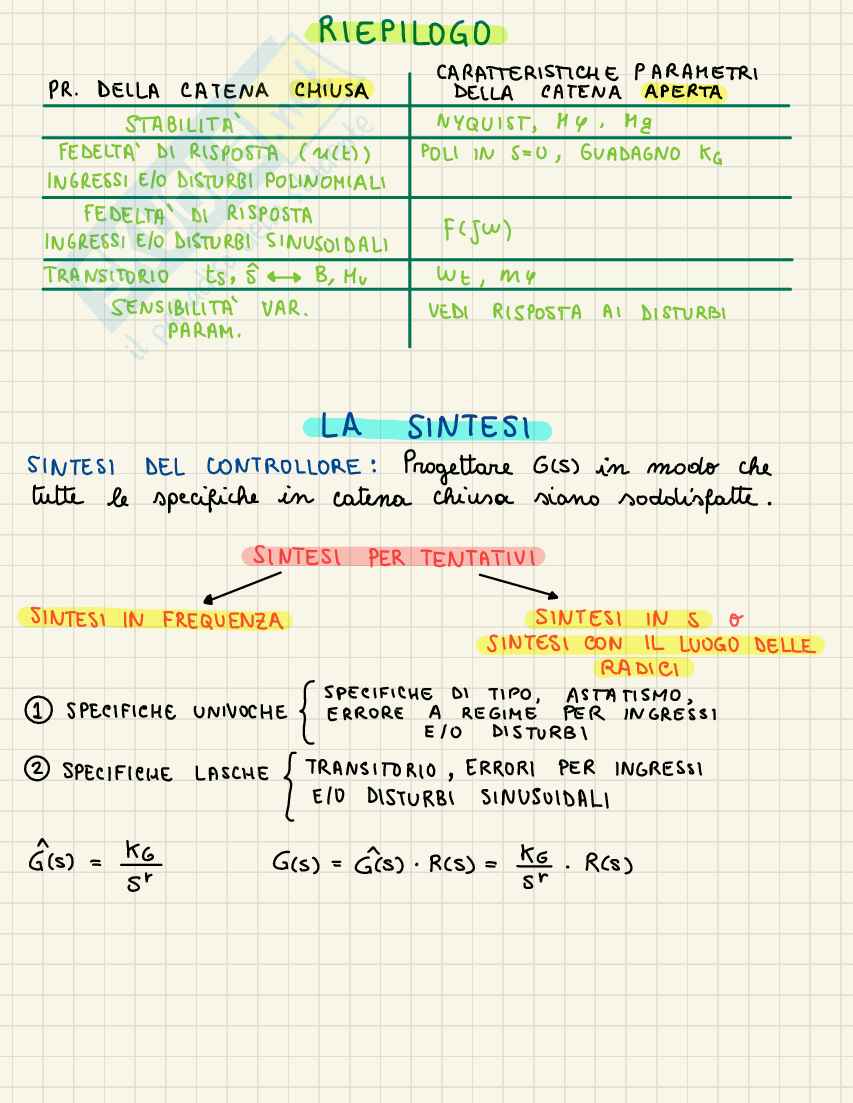 RIEPILOGO
PR. DELLA CATENA CHIUSA
CARATTERISTICHE PARAMETRI
DELLA CATENA APERTA
STABILITA'
NYQUIST, Mφ, Mg
FEDELTA' DI RISPOSTA (u(t))
INGRESSI E/O DISTURBI POLINOMIALI
POLI IN S=0, GUADAGNO KG
FEDELTA' DI RISPOSTA
INGRESSI E/O DISTURBI SINUSOIDALI
F(jω)
TRANSITORIO ts, ŝ ⟷ B, Mv
ωt, mφ
SENSIBILITA' VAR.
PARAM.
VEDI RISPOSTA AI DISTURBI
LA SINTESI
SINTESI DEL CONTROLLORE: Progettare G(s) in modo che
tutte le specifiche in catena chiusa siano soddisfatte.
SINTESI PER TENTATIVI
SINTESI IN FREQUENZA
SINTESI IN S o
SINTESI CON IL LUOGO DELLE
RADICI
① SPECIFICHE UNIVOCHE { SPECIFICHE DI TIPO, ASTATISMO,
ERRORE A REGIME PER INGRESSI
E/O DISTURBI
② SPECIFICHE LASCHE { TRANSITORIO, ERRORI PER INGRESSI
E/O DISTURBI SINUSOIDALI
Ĝ(s) = KG/s^r
G(s) = Ĝ(s) · R(s) = KG/s^r · R(s)